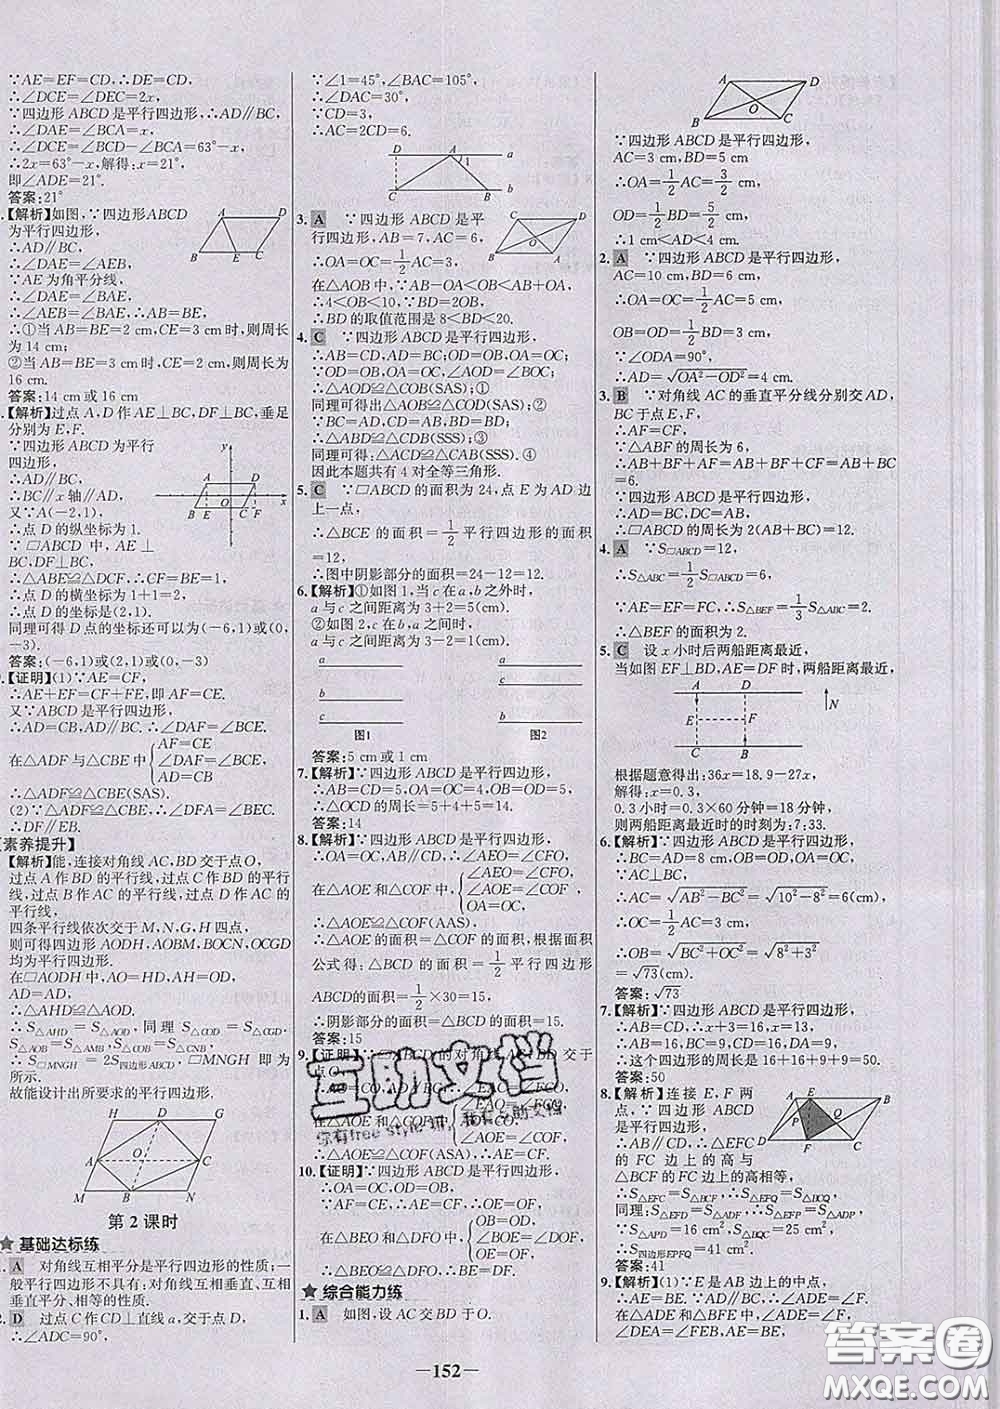 ∵AE=EF=CD,∴DE=CD,
∴∠DCE=∠DEC=2x,
∵四边形ABCD是平行四边形,∴AD∥BC,
∴∠DAE=∠BCA=x,
∴∠DCE=∠BCD-∠BCA=63°-x,
∴2x=63°-x,解得:x=21°,
即∠ADE=21°.
答案:21°
【解析】如图,∵四边形ABCD
为平行四边形,
∴AD∥BC,
∴∠DAE=∠AEB,
∵AE为角平分线,
∴∠DAE=∠BAE,
∴∠AEB=∠BAE,∴AB=BE,
∴①当AB=BE=2 cm,CE=3 cm时,则周长
为14 cm;
②当AB=BE=3 cm时,CE=2 cm,则周长为
16 cm.
答案:14 cm或16 cm
【解析】过点A,D作AE⊥BC,DF⊥BC,垂足
分别为E,F.
∵四边形ABCD为平行
四边形,
∴AD∥BC,
∴BC∥x轴∥AD,
又∵A(-2,1),
∴点D的纵坐标为1.
∵▱ABCD中,AE⊥
BC,DF⊥BC,
∴△ABE≌△DCF,∴CF=BE=1,
∴点D的横坐标为1+1=2,
∴点D的坐标是(2,1).
同理可得D点的坐标还可以为(-6,1)或(0,
-3).
答案:(-6,1)或(2,1)或(0,-3)
【证明】(1)∵AE=CF,
∴AE+EF=CF+FE,即AF=CE.
又∵ABCD是平行四边形,
∴AD=CB,AD∥BC,∴∠DAF=∠BCE.
在△ADF与△CBE中{AF=CE
∠DAF=∠BCE,
AD=CB
∴△ADF≌△CBE(SAS).
(2)∵△ADF≌△CBE,∴∠DFA=∠BEC.
∴DF∥EB.
[素养提升]
【解析】能,连接对角线AC,BD交于点O,
过点A作BD的平行线,过点C作BD的平行
线,过点B作AC的平行线,过点D作AC的
平行线,
四条平行线依次交于M,N,G,H四点,
则可得四边形AODH,AOBM,BOCN,OCGD
均为平行四边形.
在▱AODH中,AO=HD,AH=OD,
AD=AD,
∴△AHD≌△AOD.
∴S△AHD=S△AOD,同理S△COD=S△CGD,
S△AOB=S△AMB,S△COB=S△CNB,
∴S▱MNGH=2S四边形ABCD,▱MNGH即为
所示.
故能设计出所要求的平行四边形.
H D G
A O C
M B N
第2课时
★基础达标练
1. A 对角线互相平分是平行四边形的性质;一
般平行四边形不具有:对角线互相垂直、互相
垂直平分、相等的性质.
2. D 过点C作CD⊥直线a,交于点D,
∴∠ADC=90°,
∵∠1=45°,∠BAC=105°,
∴∠DAC=30°,
∵CD=3,
∴AC=2CD=6.
D A a
1
C B b
3. A ∵四边形ABCD是平
行四边形,AB=7,AC=6,
∴OA=OC=1/2AC=3,
在△AOB中,∵AB-OA<OB<AB+OA,
∴4<OB<10,∵BD=2OB,
∴BD的取值范围是8<BD<20.
4. C ∵四边形ABCD是平行四边形,
∴AB=CD,AD=BC;OD=OB,OA=OC;
∵OD=OB,OA=OC,∠AOD=∠BOC;
∴△AOD≌△COB(SAS);①
同理可得出△AOB≌△COD(SAS);②
∵BC=AD,CD=AB,BD=BD;
∴△ABD≌△CDB(SSS);③
同理可得:△ACD≌△CAB(SSS).④
因此本题共有4对全等三角形.
5. C ∵▱ABCD的面积为24,点E为AD边
上一点,
∴△BCE的面积=1/2平行四边形的面积
=12,
∴图中阴影部分的面积=24-12=12.
6.【解析】①如图1,当c在a,b之外时,
a与c之间距离为3+2=5(cm).
②如图2,c在b,a之间时,
a与c之间距离为3-2=1(cm).
a a
b c
c b
图1 图2
答案:5 cm或1 cm
7.【解析】∵四边形ABCD是平行四边形,
∴AB=CD=5,OA=OC=4,OB=OD=5,
∴△OCD的周长=5+4+5=14.
答案:14
8.【解析】∵四边形ABCD是平行四边形,
∴OA=OC,AD∥BC,∴∠AEO=∠CFO,
在△AOE和△COF中,{∠AEO=∠CFO,
∠AOE=∠COF,
OA=OC,
∴△AOE≌△COF(AAS),
∴△AOE的面积=△COF的面积,根据面积
公式得:△BCD的面积=1/2平行四边形
ABCD的面积=1/2×30=15,
∴阴影部分的面积=△BCD的面积=15.
答案:15
9.【证明】∵▱ABCD的对角线AC,BD交于
点O,
∠AOE=∠COF,
∴△AOE≌△COF(ASA),∴OE=OF.
10.【证明】∵四边形ABCD是平行四边形,
∴OA=OC,OB=OD,
∵AF=CE,∴AE=CF,∴OE=OF,
在△BEO和△DFO中,{OB=OD,
∠BOE=∠DOF,
OE=OF,
∴△BEO≌△DFO,∴BE=DF.
★综合能力练
1. A 如图,设AC交BD于O.
A D
O
B C
∵四边形ABCD是平行四边形,
AC=3 cm,BD=5 cm
∴OA=1/2AC=3/2 cm,
OD=1/2BD=5/2 cm,
∴1 cm<AD<4 cm.
2. A ∵四边形ABCD是平行四边形,
AC=10 cm,BD=6 cm,
∴OA=OC=1/2AC=5 cm,
OB=OD=1/2BD=3 cm,
∵∠ODA=90°,
∴AD=√(OA²-OD²)=4 cm.
3. B ∵对角线AC的垂直平分线分别交AD,
BC于点E,F,
∴AF=CF,
∵△ABF的周长为6,
∴AB+BF+AF=AB+BF+CF=AB+BC
=6.
∵四边形ABCD是平行四边形,
∴AD=BC,AB=CD,
∴▱ABCD的周长为2(AB+BC)=12.
4. A ∵S▱ABCD=12,
∴S△ABC=1/2S▱ABCD=6,
∵AE=EF=FC,∴S△BEF=1/3S△ABC,
∴△BEF的面积为2.
5. C 设x小时后两船距离最近,
当如图EF⊥BD,AE=DF时,两船距离最近,
A D
E F N
C B
根据题意得出:36x=18.9-27x,
解得:x=0.3,
0.3小时=0.3×60分钟=18分钟,
则两船距离最近时的时刻为:7:33.
6.【解析】∵四边形ABCD是平行四边形,
∴BC=AD=8 cm,OB=OD,OA=OC,
∵AC⊥BC,
∴AC=√(AB²-BC²)=√(10²-8²)=6(cm),
∴OC=1/2AC=3 cm,
∴OB=√(BC²+OC²)=√(8²+3²)
=√73(cm).
答案:√73
7.【解析】∵四边形ABCD是平行四边形,
∴AB=CD,x+3=16,x=13,
∴AB=16,BC=9,CD=16,DA=9,
∴这个四边形的周长是16+16+9+9=50.
答案:50
8.【解析】连接E,F两
点,∵四边形ABCD是
平行四边形,
∴AB∥CD,∴△EFC
的FC边上的高与
△BCF的FC边上的高相等,
∴S△EFC=S△BCF,∴S△EFQ=S△BCQ,
同理:S△EFD=S△ADF,∴S△EFP=S△ADP,
∵S△APD=16 cm²,S△BQC=25 cm²,
∴S四边形EPFQ=41 cm².
答案:41
9.【解析】(1)∵E是AB边上的中点,
∴AE=BE.∵AD∥BC,∴∠ADE=∠F.
在△ADE和△BFE中,∠ADE=∠F,
∠DEA=∠FEB,AE=BE,
—152—
互助文档
答案圈
MXQE.COM